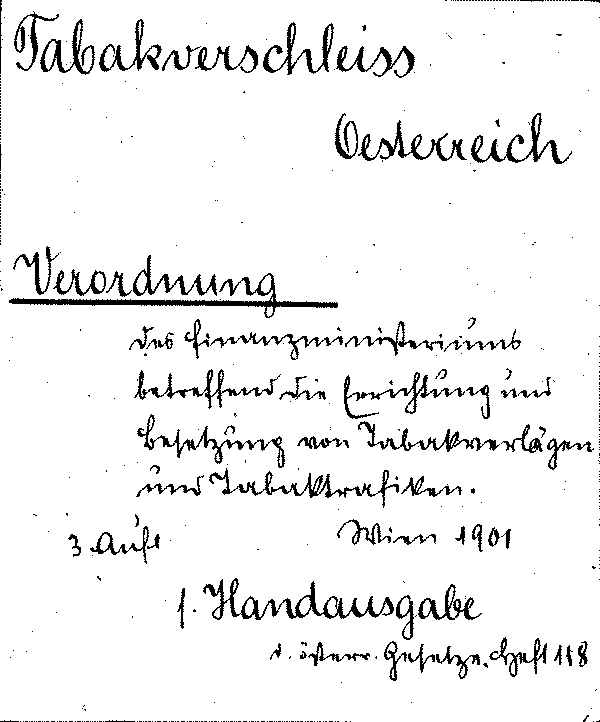 Tabakverschleiss
Oesterreich
Verordnung
des Finanzministeriums
betreffend die Errichtung und
Besetzung von Tabakverlägen
und Tabaktrafiken.
3. Aufl Wien 1901
s. Handausgabe
d. österr. Gesetze. Heft 118